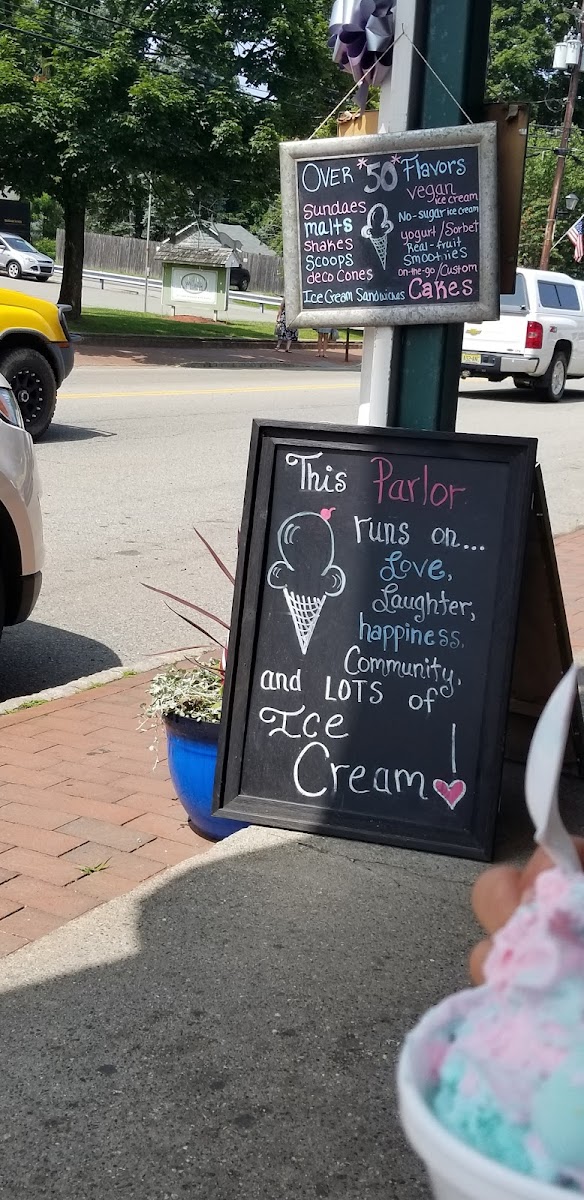 OVER *50* Flavors
Sundaes
malts
shakes
scoops
deco Cones
Ice Cream Sandwiches
vegan
ice cream
No-sugar ice cream
yogurt/Sorbet
Real-fruit
Smoothies
on-the-go/Custom
Cakes
This Parlor
runs on...
Love,
Laughter,
happiness,
Community,
and LOTS of
Ice
Cream!